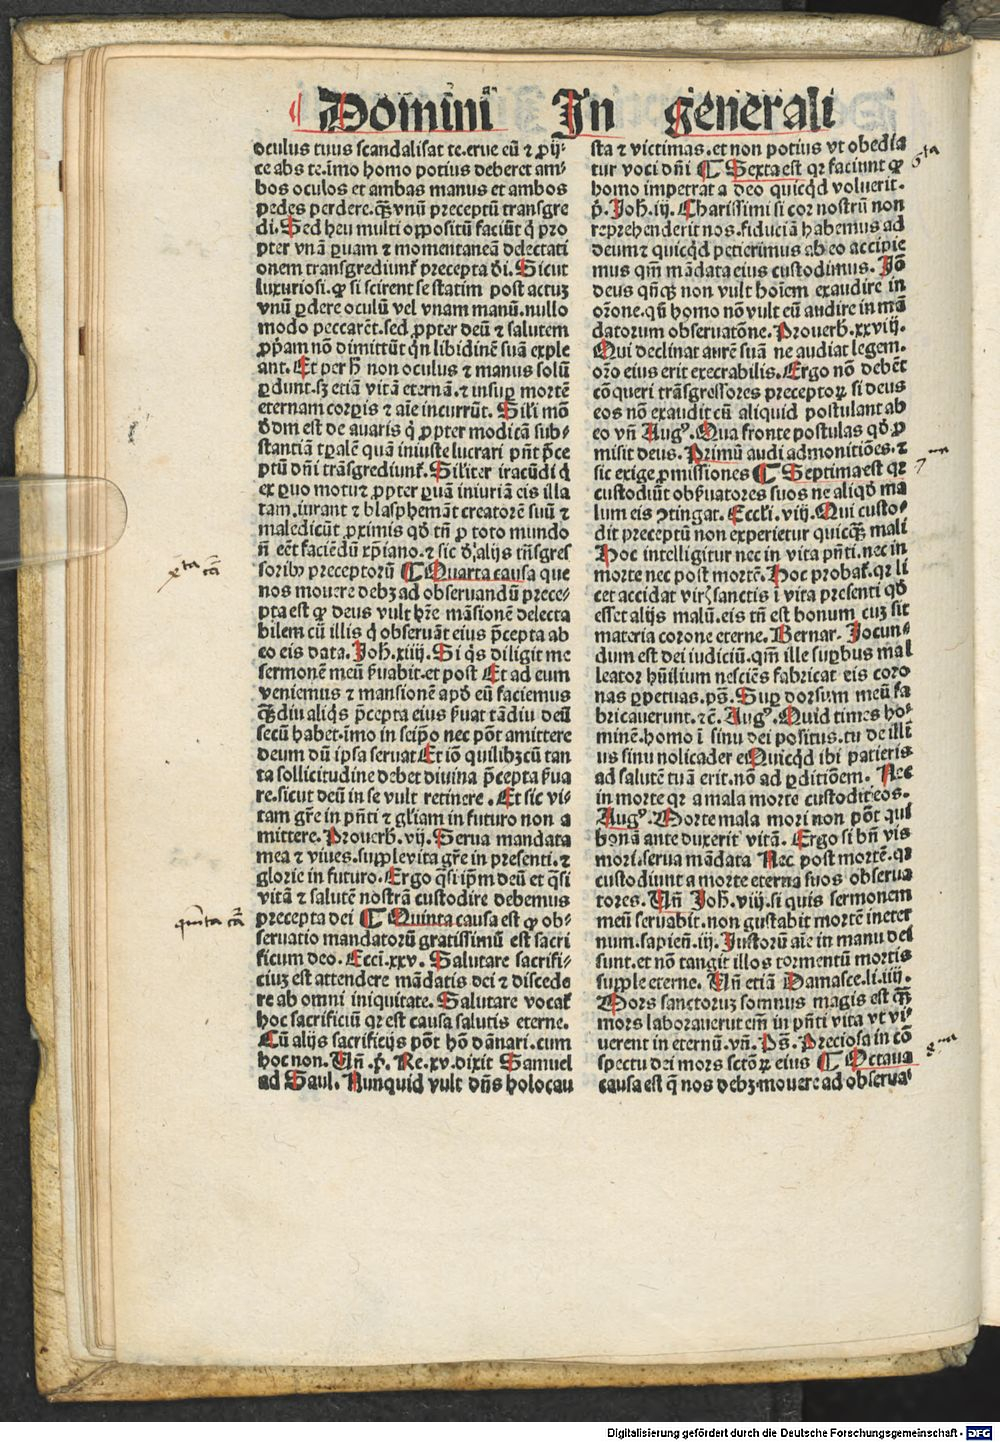 Domini In generali
oculus tuus scandalisat te. erue eū ⁊ ꝓij-
ce abs te. īmo homo potius deberet am-
bos oculos et ambas manus et ambos
pedes perdere. qꝫ vnū preceptū transgre
di. Sed heu multi oppositū faciūt q̇ pro
pter vnā ꝑuam ⁊ momentaneā delectati
onem transgrediunt̃ precepta dei. Sicut
luxuriosi. qꝙ si scirent se statim post actuꝫ
vnū ꝑdere oculū vel vnam manū. nullo
modo peccarēt. sed ꝓpter deū ⁊ salutem
ꝓp̄am nō dimittūt qͥn libidinē suā exple
ant. Et per h̄ non oculus ⁊ manus solū
ꝑdunt. sꝫ etiā vitā eternā. ⁊ insuꝑ mortē
eternam corꝑis ⁊ aīe incurrūt. Sil̄i mō
dōm est de auaris q̇ ꝓpter modicā sub-
stantiā tꝑalē quā iniuste lucrari pn̄t p̄ce
ptū dn̄i trāsgrediunt̃. Sil̄iter iracūdi q̇
ex ꝑuo motu ⁊ ꝓpter ꝑuā iniuriā eis illa
tam. iurant ⁊ blasphemāt creatorē suū ⁊
maledicūt ꝓximis qd̄ tn̄ ꝓ toto mundo
n̄ eēt faciēdū xp̄iano. ⁊ sic de alijs trāsgres
soribꝫ preceptorū ¶ Quarta causa que
nos mouere debꝫ ad obseruandū prece-
pta est qꝙ deus vult hr̄e māsionē delecta
bilem cū illis q̇ obseruāt eius p̄cepta ab
eo eis data. Joh. xiiij. Si qͥs diligit me
sermonē meū ẜuabit. et post Et ad eum
veniemus ⁊ mansionē apd̄ eū faciemus
qꝫdiu aliqͥs p̄cepta eius ẜuat tādiu deū
secū habet. īmo in seip̄o nec pōt amittere
deum dū ip̄sa seruat Et iō quilibꝫ cū tan
ta sollicitudine debet diuina p̄cepta ẜua
re. sicut deū in se vult retinere. Et sic vi-
tam gr̄e in pn̄ti ⁊ gl̄iam in futuro non a
mittere. Prouerb. vij. Serua mandata
mea ⁊ viues. supple vita gr̄e in presenti. ⁊
glorie in futuro. Ergo qͣsi ip̄m deū et qͣsi
vitā ⁊ salutē nostrā custodire debemus
precepta dei ¶ Quinta causa est qꝙ ob-
seruatio mandatorū gratissimū est sacri
ficum deo. Ecci. xxv. Salutare sacrifi-
ciuꝫ est attendere mādatis dei ⁊ discede
re ab omni iniquitate. Salutare vocat̃
hoc sacrificiū qꝛ est causa salutis eterne.
Cū alijs sacrificijs pōt hō dānari. cum
hoc non. Vn̄. p̄. Re. xv. dixit Samuel
ad Saul. Nunquid vult dn̄s holocau
sta ⁊ victimas. et non potius vt obedia
tur voci dn̄i ¶ Sexta est qꝛ faciunt qꝙ
homo impetrat a deo quicqͥd voluerit.
p̄. Joh. iij. Charissimi si cor nostrū non
reprehenderit nos. fiduciā habemus ad
deum ⁊ quicqͥd petierimus ab eo accipie
mus qm̄ mādata eius custodimus. Iō
deus qn̄qꝫ non vult hoīem exaudire in
orōne. qn̄ homo nō vult eū audire in mā
datorum obseruatōne. Prouerb. xxviij.
Qui declinat aurē suā ne audiat legem.
orō eius erit execrabilis. Ergo nō debēt
cōqueri trāsgressores preceptoꝝ si deus
eos nō exaudit cū aliquid postulant ab
eo vn̄ Augꝰ. Qua fronte postulas qd̄ ꝓ
misit deus. Primū audi admonitiōes. ⁊
sic exige ꝓmissiones ¶ Septima est qꝛ
custodiūt obẜuatores suos ne aliqd̄ ma
lum eis ꝯtingat. Eccl̄i. viij. Qui custo-
dit preceptū non experietur quicqꝫ mali
Hoc intelligitur nec in vita pn̄ti. nec in
morte nec post mortē. Hoc probat̃. qꝛ li
cet accidat viris sanctis ī vita presenti qd̄
esset alijs malū. eis tn̄ est bonum cuꝫ sit
materia corone eterne. Bernar. Jocun-
dum est dei iudiciū. qm̄ ille suꝑbus mal
leator hūilium nesciēs fabricat eis coro
nas ꝑpetuas. ps̄. Suꝑ dorsum meū fa
bricauerunt. ⁊c̄. Augꝰ. Quid times ho-
minē. homo ī sinu dei positus. tu de illī
us sinu noli cader ei Quicqͥd ibi patieris
ad salutē tuā erit. nō ad ꝑditiōem. Nec
in morte qꝛ a mala morte custodit eos.
Augꝰ. Morte mala mori non pōt qui
bonā ante duxerit vitā. Ergo si bn̄ vis
mori. serua mādata Nec post mortē. qꝛ
custodiunt a morte eterna suos obserua
tores. Vn̄ Joh. viij. si quis sermonem
meū seruabit. non gustabit mortē in eter
num. sapien̄. iij. Justorū aīe in manu dei
sunt. et nō tangit illos tormentū mortis
supple eterne. Vn̄ etiā Damasce. li. iiij.
Mors sanctoruꝫ somnus magis est qꝫ
mors laborauerūt em̄ in pn̄ti vita vt vi-
uerent in eternū. vn̄. Ps̄. Preciosa in cō
spectu dei mors sctōꝝ eius ¶ Octaua
causa est q̄ nos debꝫ mouere ad obserua
6ta
7ma
4ta cā
quīta cā
8ua
Digitalisierung gefördert durch die Deutsche Forschungsgemeinschaft - DFG